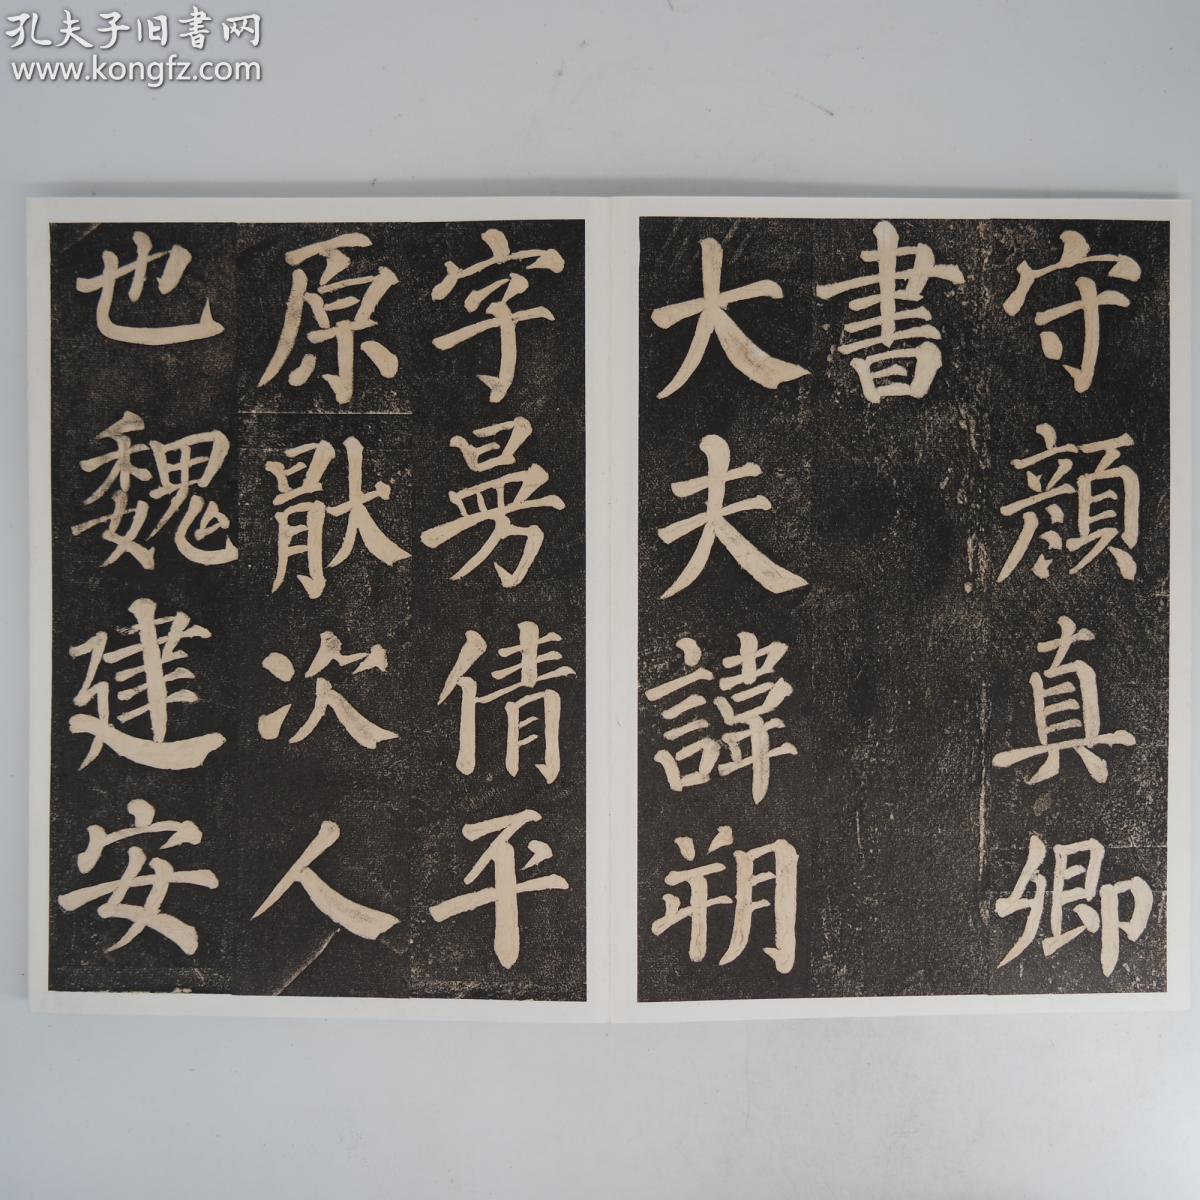 孔夫子旧書网
www.kongfz.com
守顔真卿
書
大夫諱朔
字曼倩平
原猒次人
也魏建安